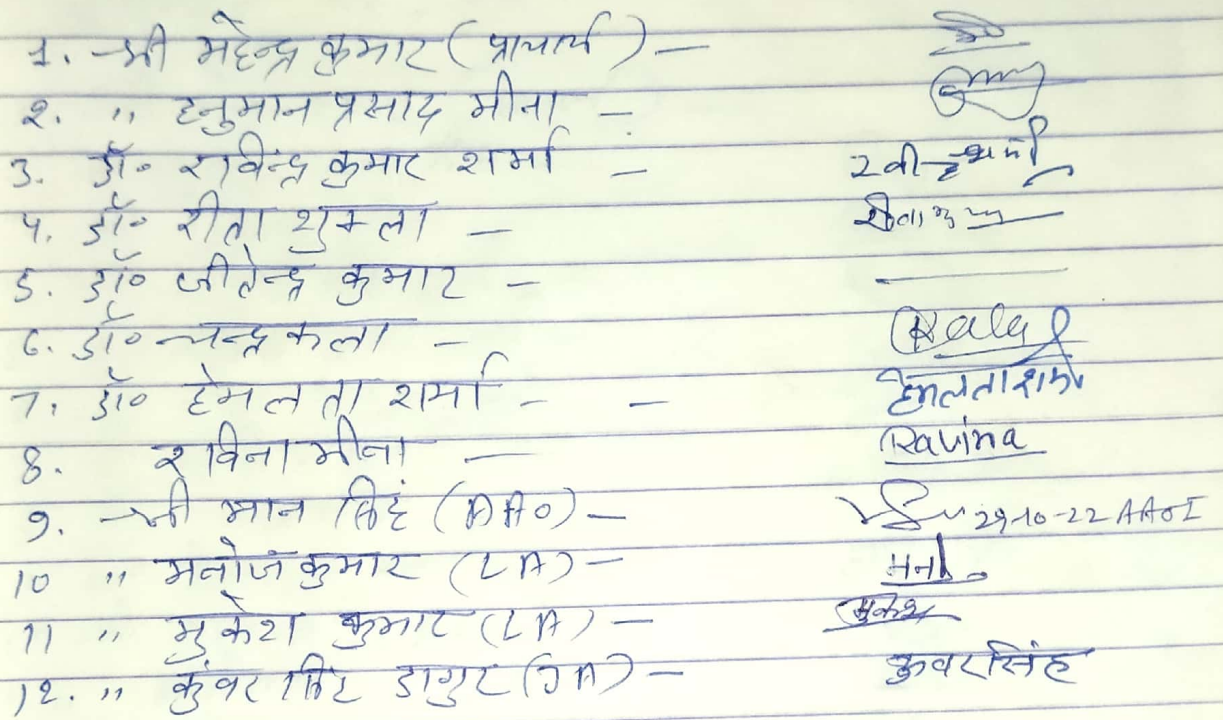 1. श्री महेन्द्र कुमार (प्राचार्य) —
2. " हनुमान प्रसाद मीना —
3. डॉ० रविन्द्र कुमार शर्मा — रवीन्द्र शर्मा
4. डॉ० रीता शुक्ला —
5. डॉ० जीतेन्द्र कुमार — —
6. डॉ० चन्द्रकला — Kala
7. डॉ० हेमलता शर्मा - — हेमलता शर्मा
8. रविना मीना — Ravina
9. श्री मान सिंह (AAO) — 29-10-22 AAOI
10 " मनोज कुमार (LA) —
11 " मुकेश कुमार (LA) — मुकेश
12. " कुंवर सिंह डागुर (JA) — कुवरसिंह